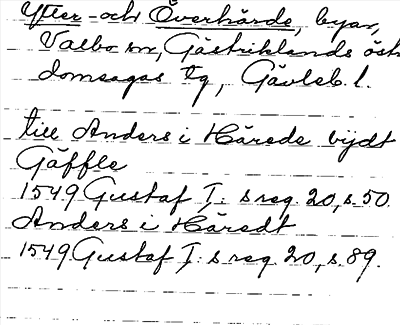 Ytter- och Överhärde, byar,
Valbo sn, Gästriklands östr
domsagas tg, Gävleb. l.
till Anders i Härede bijdt
Gäffle
1549 Gustaf I: s reg. 20, s. 50.
Anders i Häredt
1549 Gustaf I: s reg. 20, s. 89.